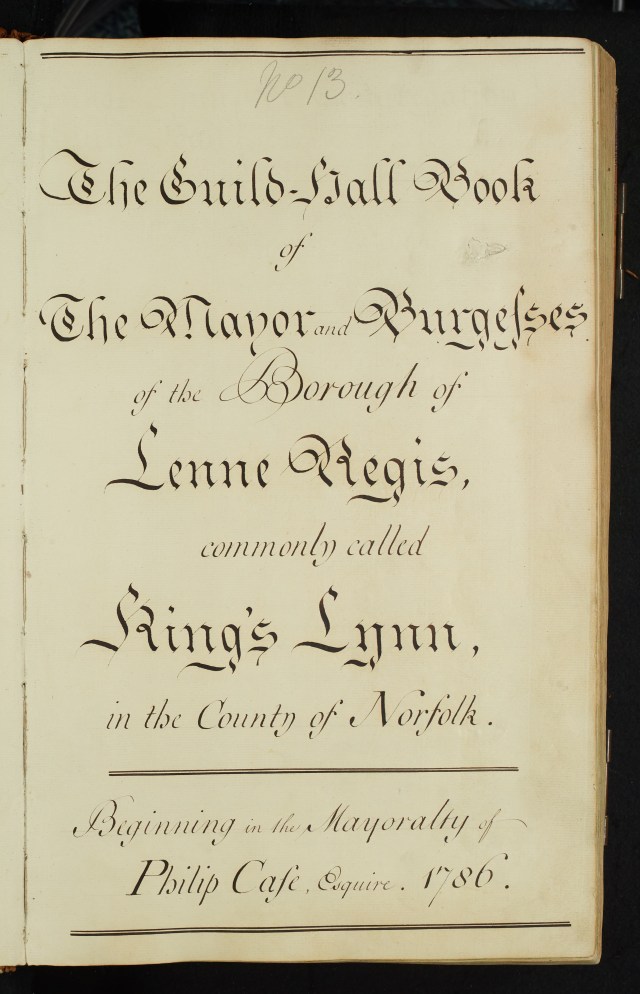 No 13.
The Guild-Hall Book
of
The Mayor and Burgeſses
of the Borough of
Lenne Regis,
commonly called
King's Lynn,
in the County of Norfolk.
Beginning in the Mayoralty of
Philip Caſe, Esquire. 1786.